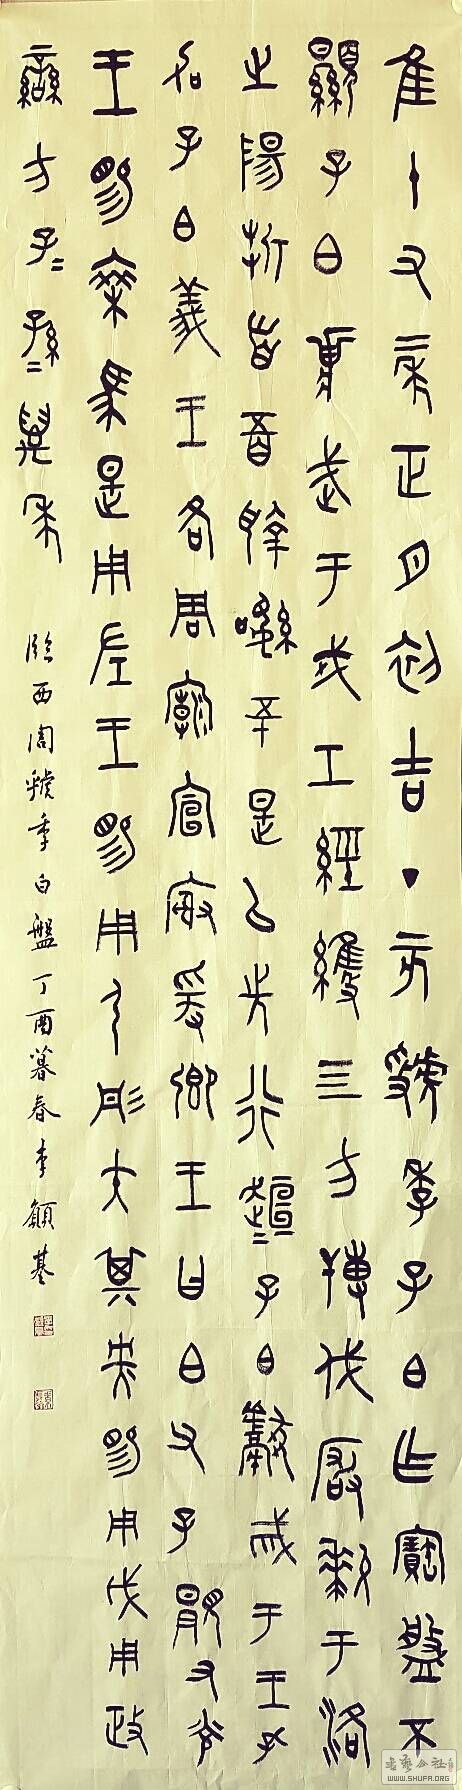 隹十又二年正月初吉丁亥虢季子白乍寶盤不
顯子白武于戎工經維四方搏伐玁狁于洛
之陽折首五百執訊五十是以先行趄=子白獻馘于王孔
加子白義王各周廟宣榭爰鄉王曰白父孔顯又光
王賜乘馬是用左王賜用弓彤矢其央賜用戉用政
蠻方子=孫=萬年
臨西周虢季白盤丁酉暮春李基
書藝公社
WWW.SHUFA.ORG